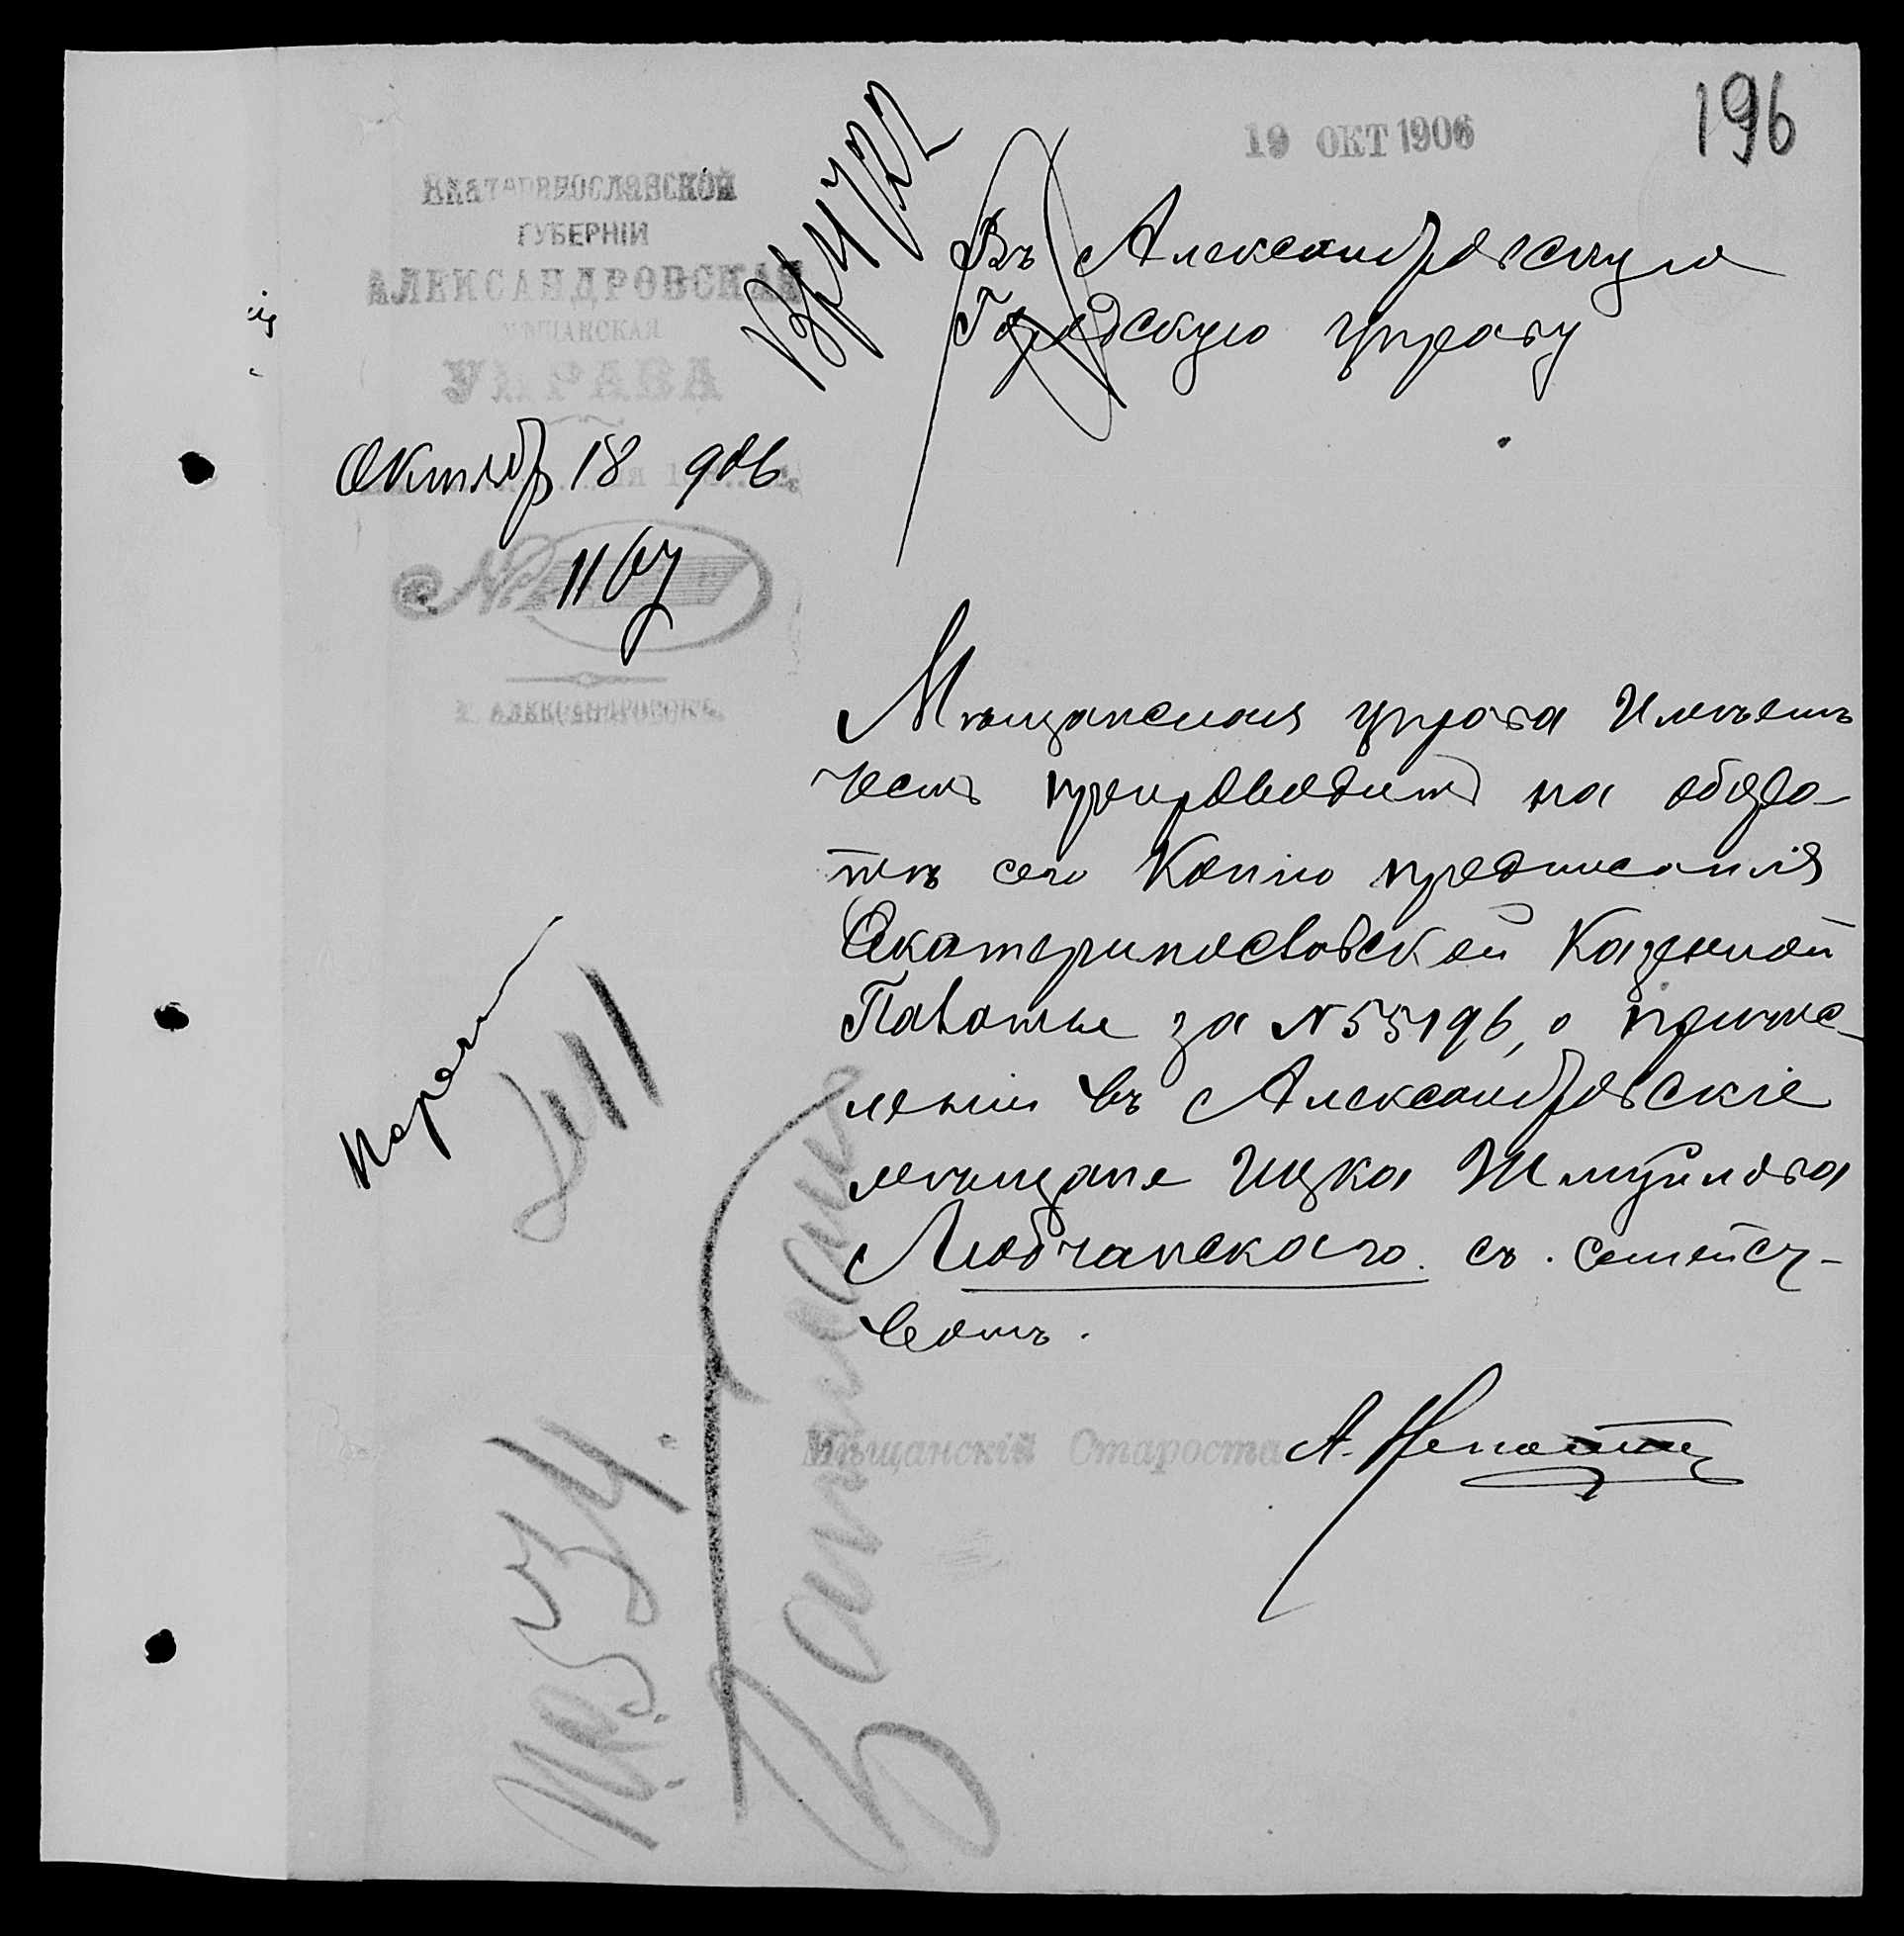 196
19 ОКТ 1906
Вр 4722
ЕКАТЕРИНОСЛАВСКОЙ
ГУБЕРНІИ
АЛЕКСАНДРОВСКАЯ
МѢЩАНСКАЯ
УПРАВА
Октябр 18 906
№ 1167
Г. АЛЕКСАНДРОВСКЪ.
Въ Александровскую
Городскую управу
Мѣщанская управа Имѣетъ
честь препроводить на оборо-
тѣ сего Копію предписанія
Екатеринославской Казенной
Палаты за № 55196, о причис-
леніи въ Александровскіе
мѣщане Ицка Шмуйлова
Любчанскаго съ семейст-
вомъ.
Мѣщанскій Староста А.